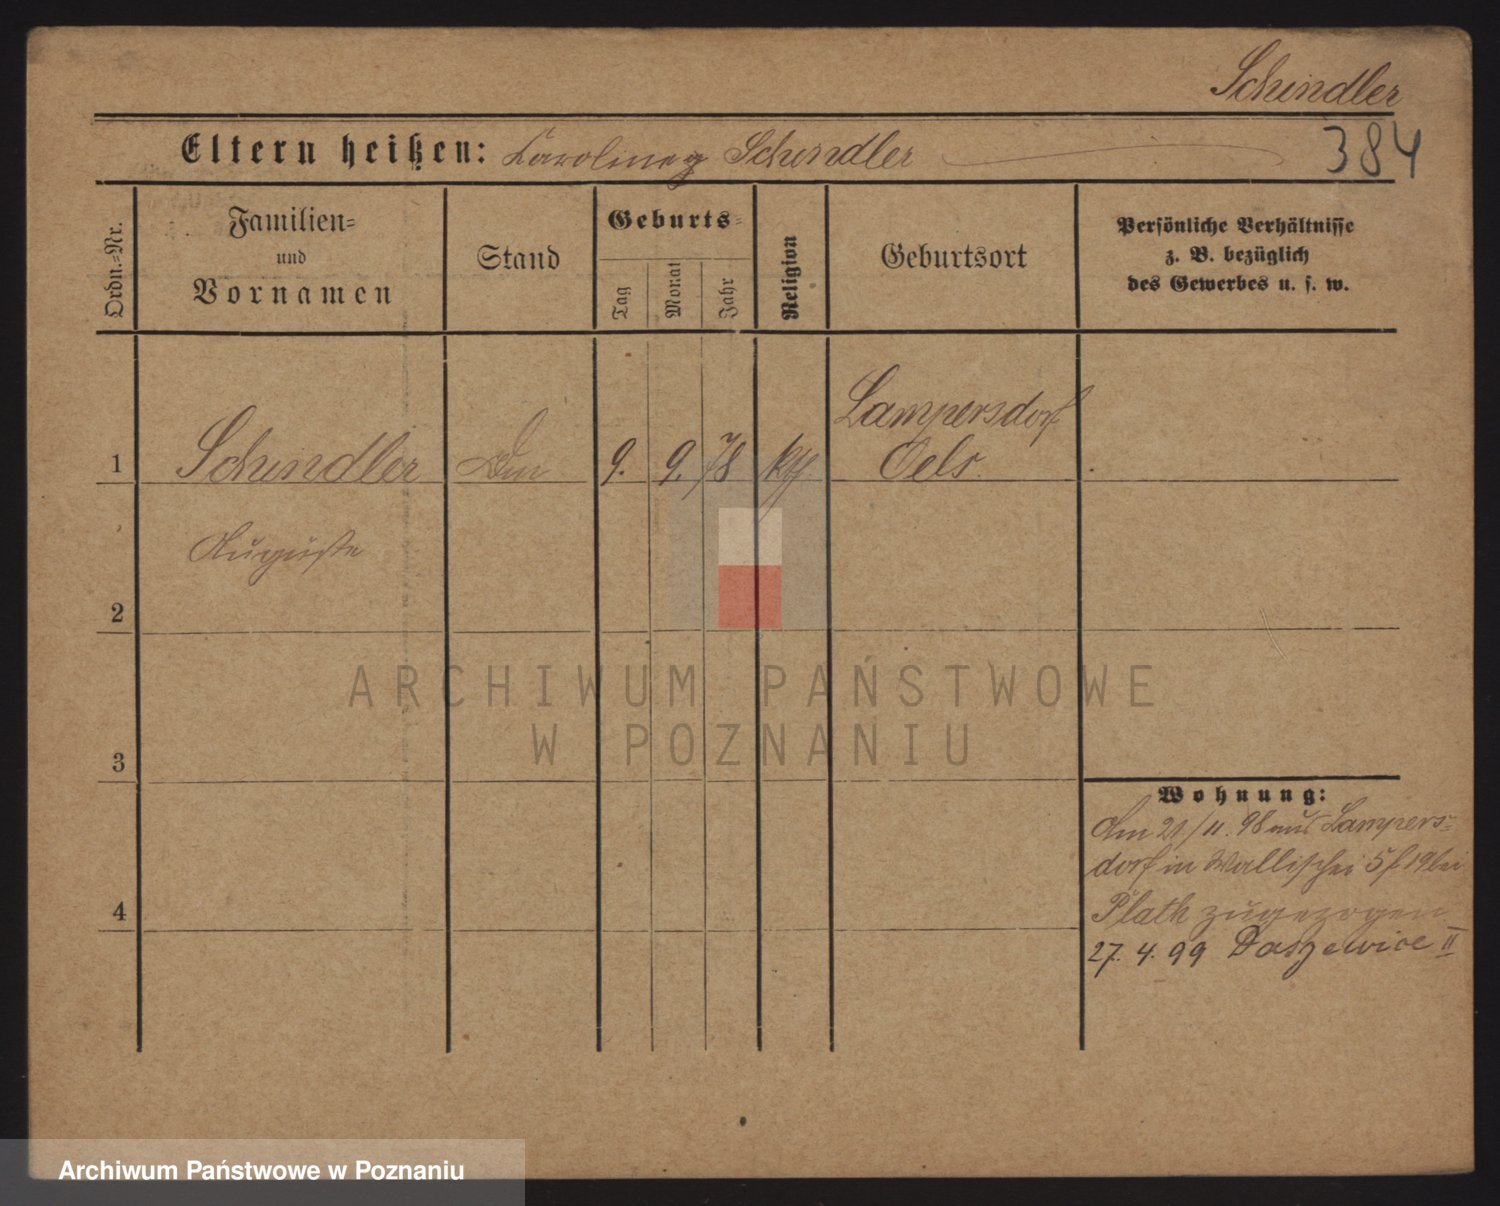 Schindler
384
Eltern heißen: Caroline Schindler
Ordn.-Nr.
Familien-
und
Vornamen
Stand
Geburts-
Tag
Monat
Jahr
Religion
Geburtsort
Persönliche Verhältnisse
z. B. bezüglich
des Gewerbes u. s. w.
1
Schindler
9. 9. 78
Lampersdorf
Oels.
Auguste
2
3
4
Wohnung:
Am 21/11. 98 aus Lampers-
dorf in Wallischei 5 bei
Plath zugezogen
27. 4. 99 Daszewice II
ARCHIWUM PAŃSTWOWE
W POZNANIU
Archiwum Państwowe w Poznaniu